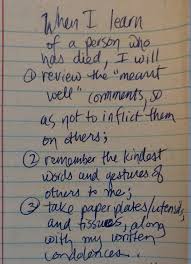 When I learn
of a person who
has died, I will
① review the "meant
well" comments, so
as not to inflict them
on others;
② remember the kindest
words and gestures of
others to me;
③ take paper plates/utensils,
and tissues, along
with my written
condolences.